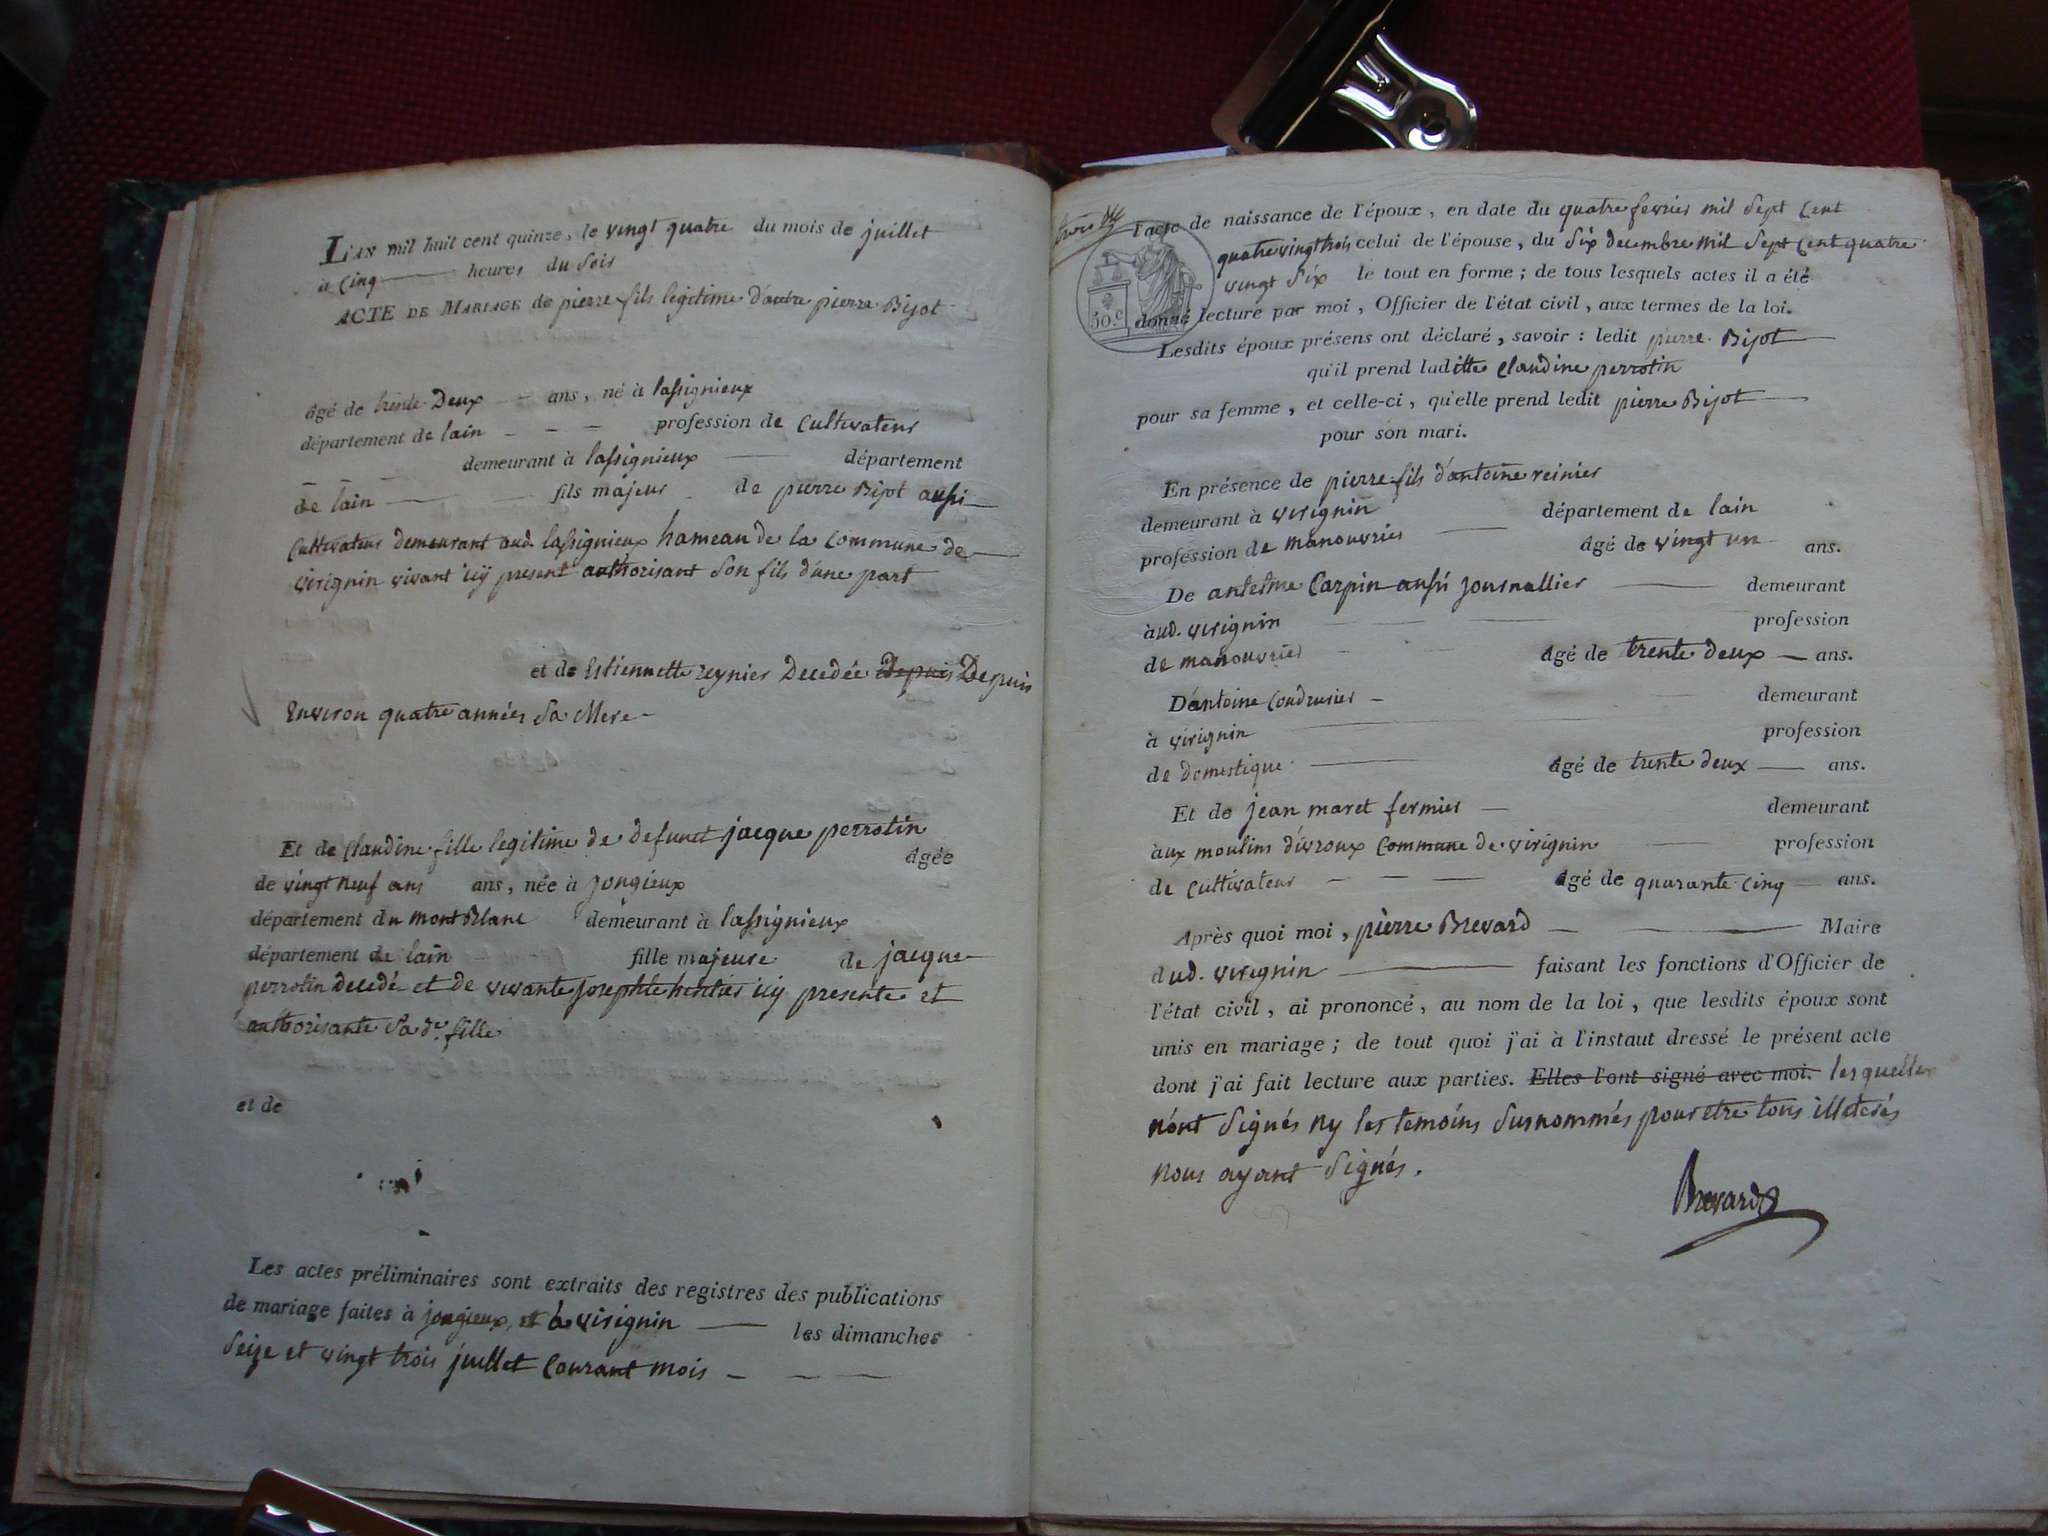 L'AN mil huit cent quinze, le vingt quatre du mois de juillet
à cinq heures du soir
ACTE DE MARIAGE de pierre fils legitime d'autre pierre Bijot
âgé de trente Deux ans, né à lassignieux
département de lain profession de cultivateur
demeurant à lassignieux département
de lain fils majeur de pierre Bijot aussi
cultivateur demeurant aud. lassignieux hameau de la commune de
virignin vivant icy present authorisant son fils d'une part
et de Estiennette reynier Decedée Depuis Depuis
Environ quatre années sa Mere
Et de claudine fille legitime de defunct jacque perrotin
âgée
de vingt neuf ans ans, née à jongieux
département du montBlanc demeurant à lassignieux
département de lain fille majeure de jacque
perrotin decedé et de vivante josephte icy presente et
authorisante sa de. fille
et de
Les actes préliminaires sont extraits des registres des publications
de mariage faites à jongieux, et a virignin les dimanches
seize et vingt trois juillet courant mois
l'acte de naissance de l'époux, en date du quatre fevrier mil sept cent
quatre vingt trois celui de l'épouse, du six decembre mil sept cent quatre
vingt six le tout en forme; de tous lesquels actes il a été
donné lecture par moi, Officier de l'état civil, aux termes de la loi.
50.c
Lesdits époux présens ont déclaré, savoir: ledit pierre Bijot
qu'il prend laditte claudine perrotin
pour sa femme, et celle-ci, qu'elle prend ledit pierre Bijot
pour son mari.
En présence de pierre fils d'antoine reinier
demeurant à virignin département de lain
profession de manouvrier âgé de vingt un ans.
De antelme Carpin aussi journallier demeurant
àud. virignin profession
de manouvrier âgé de trente deux ans.
D'antoine coudurier demeurant
à virignin profession
de domestique âgé de trente deux ans.
Et de jean maret fermier demeurant
àux moulins d'ivroux commune de virignin profession
de cultivateur âgé de quarante cinq ans.
Après quoi moi, pierre Brevard Maire
dud. virignin faisant les fonctions d'Officier de
l'état civil, ai prononcé, au nom de la loi, que lesdits époux sont
unis en mariage; de tout quoi j'ai à l'instaut dressé le présent acte
dont j'ai fait lecture aux parties. Elles l'ont signé avec moi. lesquelles
n'ont signés ny les temoins surnommés pour etre tous illeterés
nous ayant signés.
Brevard